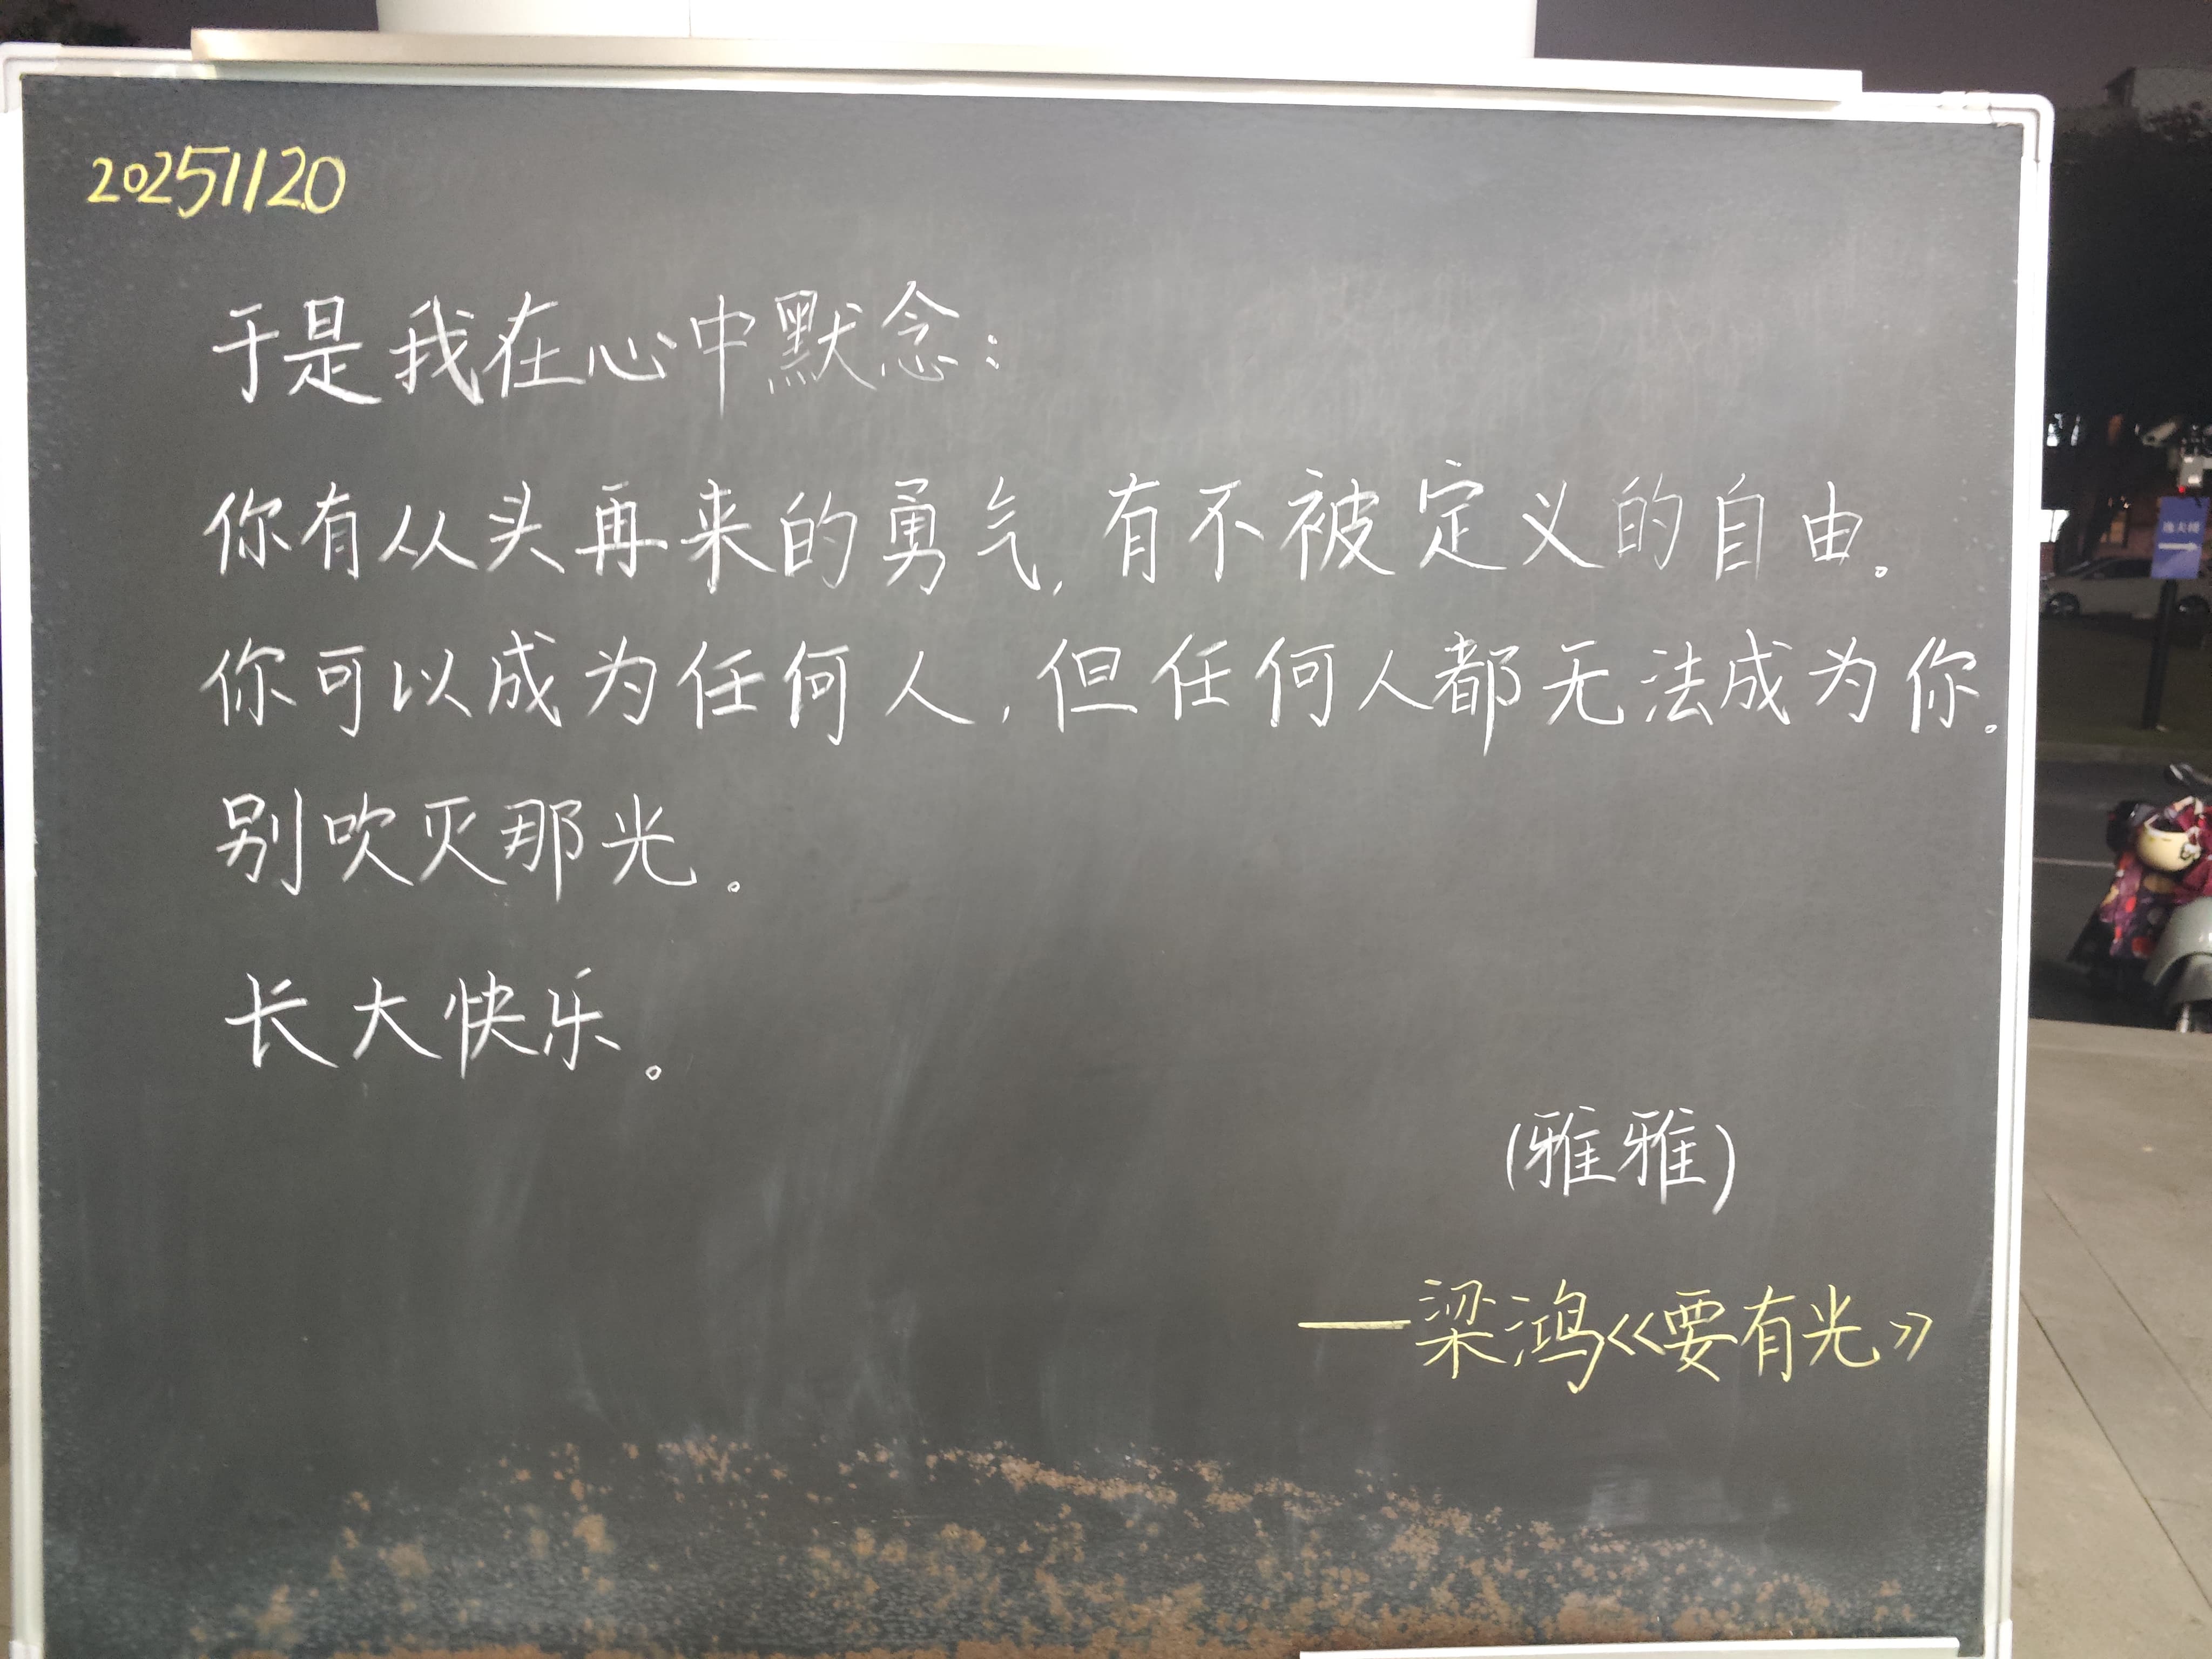 20251120
于是我在心中默念：
你有从头再来的勇气，有不被定义的自由。
你可以成为任何人，但任何人都无法成为你。
别吹灭那光。
长大快乐。
(雅雅)
——梁鸿《要有光》